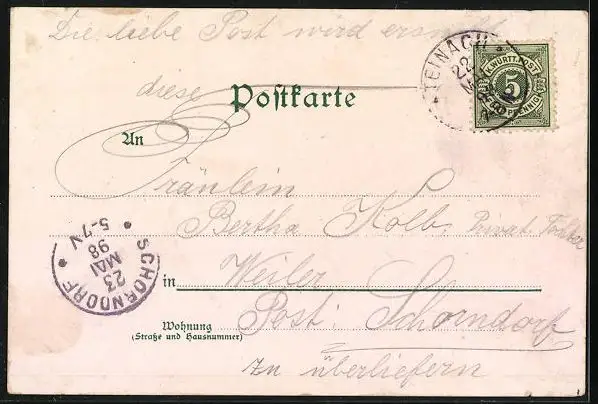 Die liebe Post wird ersucht
diese Postkarte
An
Fräulein
Bertha Kolb, Privat.
in Weiler
Post: Schorndorf
Wohnung
(Straße und Hausnummer)
zu überliefern
TEINACH
22
MAI
K. WÜRTT. POST
5
PFENNIG
SCHORNDORF
23
MAI
98
5-7 V